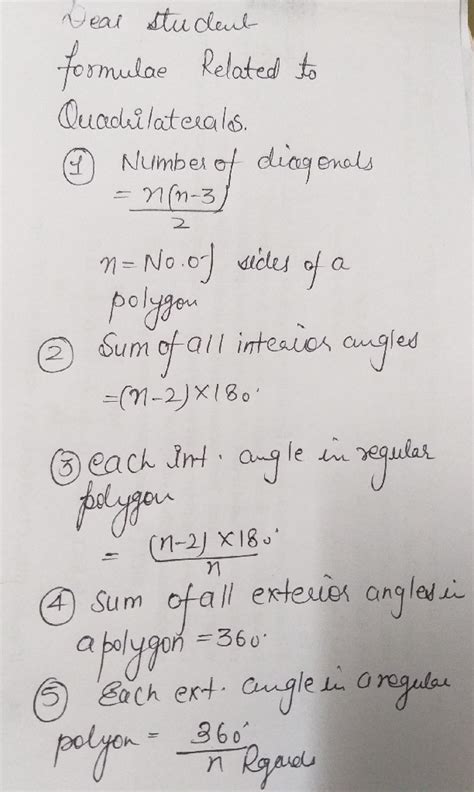 Dear student
formulae Related to
Quadrilaterals.
① Number of diagonals
= n(n-3)
2
n = No. of sides of a
polygon
② Sum of all interior angles
= (n-2) × 180°
③ each Int. angle in regular
polygon
= (n-2) × 180°
n
④ Sum of all exterior angles in
a polygon = 360°
⑤ Each ext. angle in a regular
polyon = 360°
n Regards